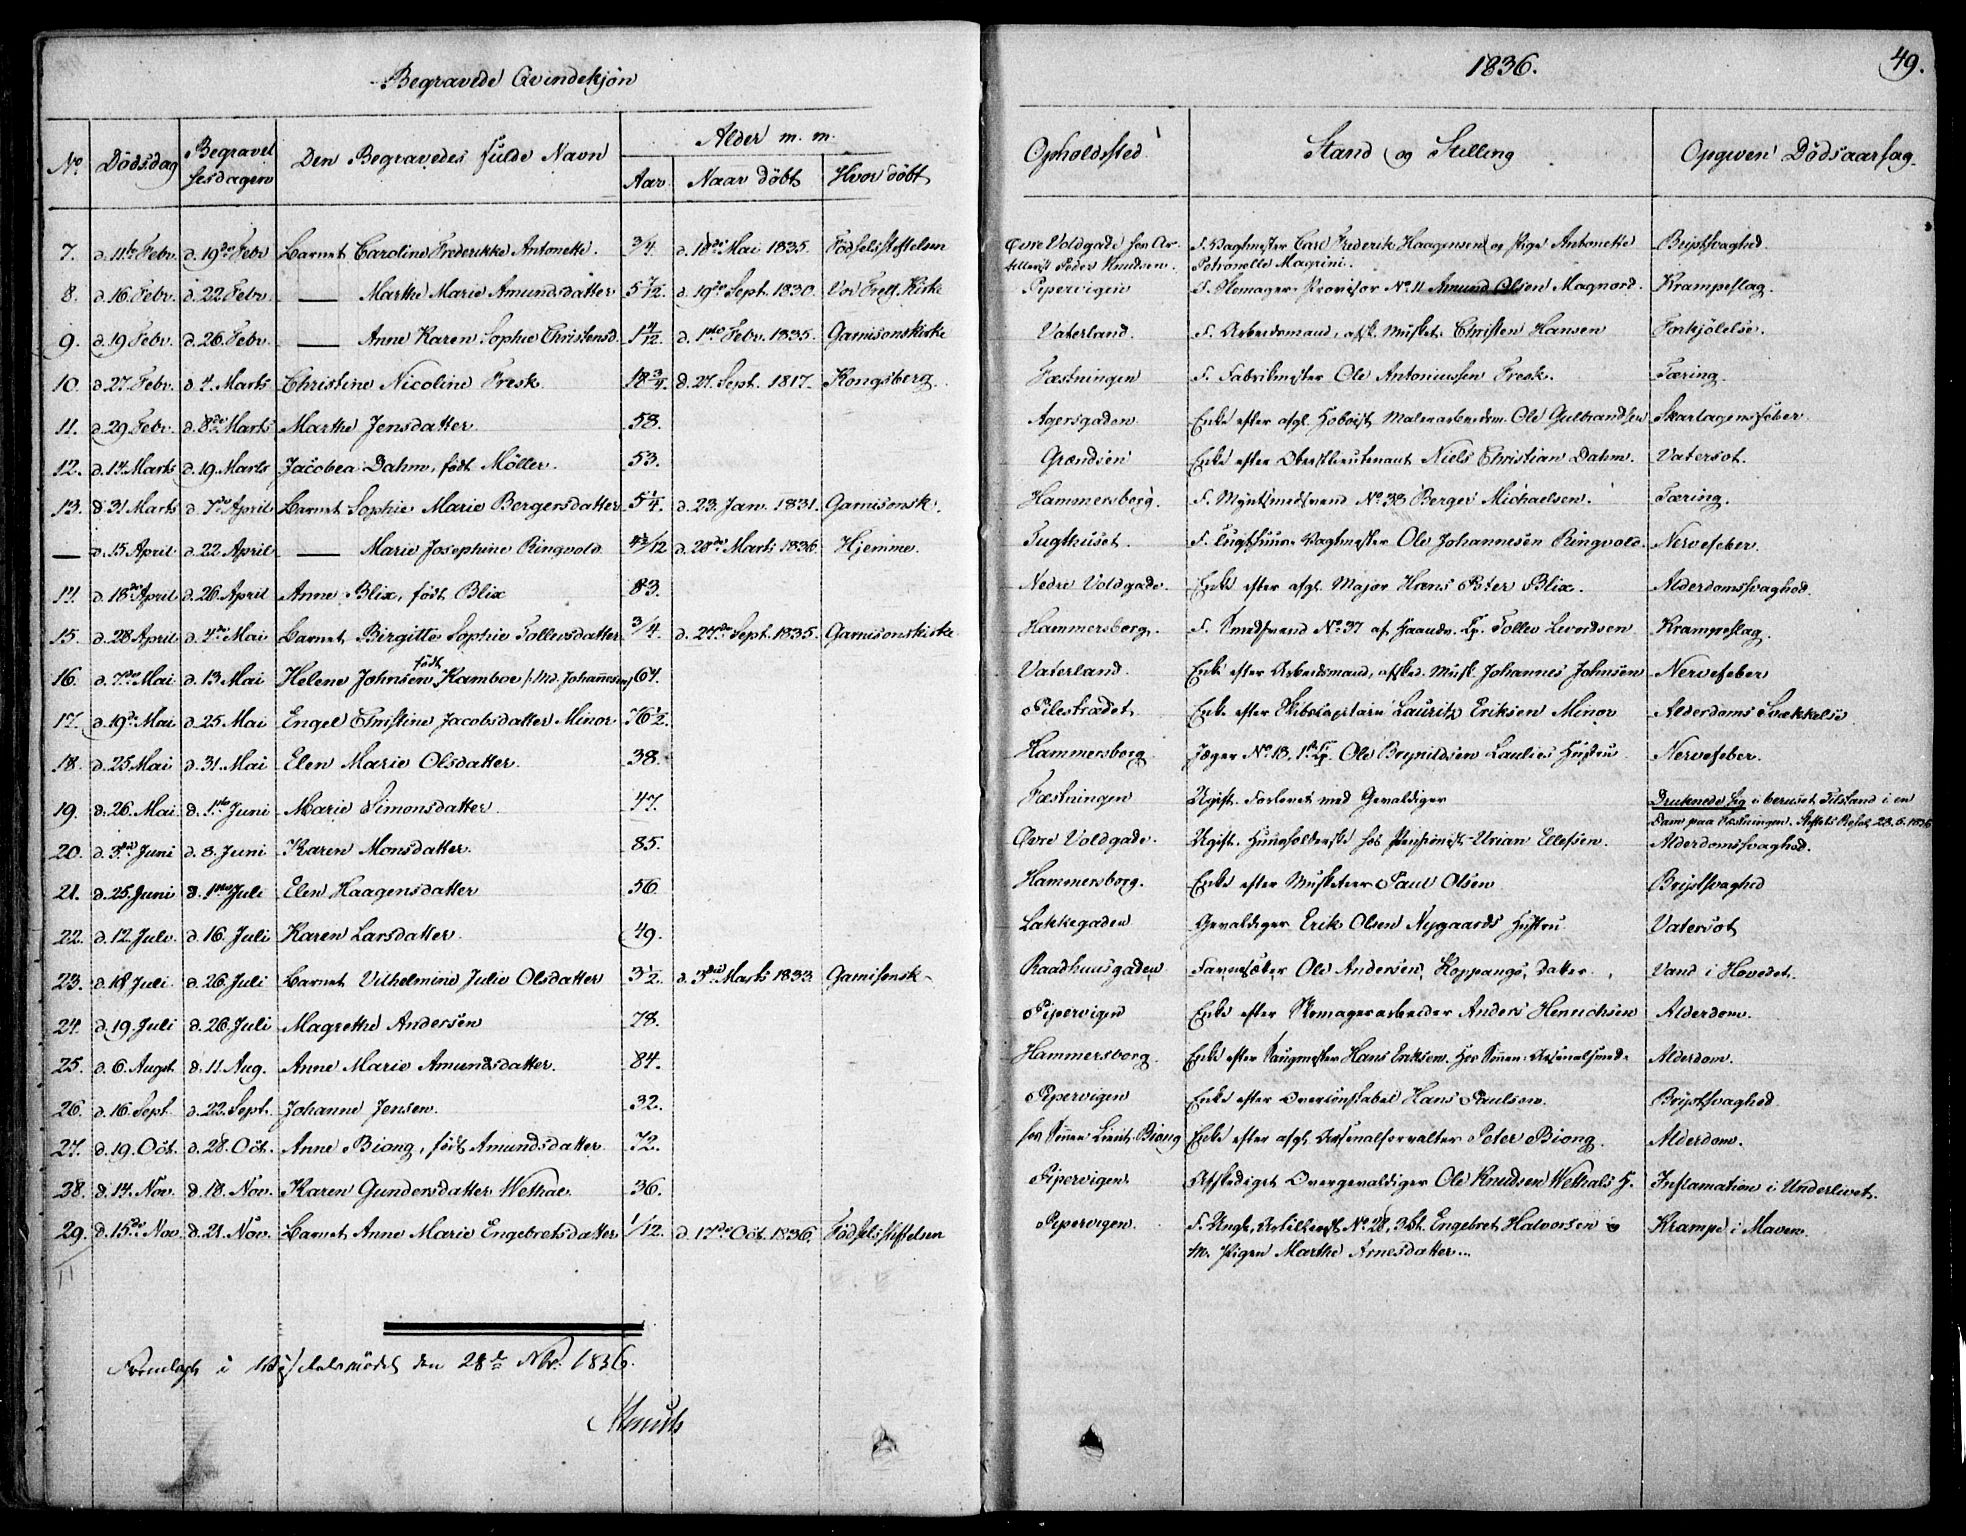 Begravede Qvindekjøn
1836.
49.
No. Dödsdag Begravelsesdagen Den Begravedes fulde Navn Alder m. m. Opholdssted Stand og Stilling Opgiven Dödsaarsag.
Aar Naar döbt Hvor döbt
7. d. 11te Febr. d. 19de Febr. Barnet Caroline Frederikke Antonette. 3/4. d. 18de Mai 1835. Födselsstiftelsen Øvre Voldgade hos Ar- F. Vagtmester Carl Frederik Haagensen og Pige Antonette Brystsvaghed.
tillerist Peder Knudsen. Petronelle Magrini.
8. d. 16 Febr. d. 22 Febr. — Marthe Marie Amundsdatter 5 5/12. d. 19de Sept. 1830. Vor Frels. Kirke Pipervigen F. Skomager Provisor No. 11 Amund Olsen Magnord. Krampeslag.
9. d. 19 Febr. d. 26 Febr. — Anne Karen Sophie Christensd. 1 4/12 d. 1ste Febr. 1835. Garnisonskirke Vaterland. F. Arbeidsmand, afsk. Musket. Christen Hansen Forkjölelse.
10. d. 27 Febr. d. 4. Marts Christine Nicoline Fresk. 18 3/4. d. 27. Sept. 1817. Kongsberg. Fæstningen F. Fabrikmester Ole Antoniussen Fresk. Tæring.
11. d. 29 Febr. d. 8de Marts Marthe Jensdatter. 58. Agersgaden Enke efter afgl. Hoboist Malerarbeidsm. Ole Gulbrandsen Skarlagensfeber
12. d. 14 Marts d. 19. Marts Jacobea Dahm, födt Möller. 53. Grændsen Enke efter Oberstlieutenant Niels Christian Dahm. Vatersot.
13. d. 31 Marts d. 7de April Barnet Sophie Marie Bergersdatter 5 1/4. d. 23. Jan. 1831. Garnisonsk. Hammersborg. F. No. 38 Berger Michaelsen. Tæring.
— d. 15 April d. 22 April — Marie Josephine Ringvold 4 3/12 d. 28de Marts 1836 Hjemme. Tugthuset. F. Tugthuus-Vagtmester Ole Johannesen Ringvold. Nervefeber.
14. d. 18de April d. 26 April Anne Blix, födt Blix 83. Nedre Voldgade. Enke efter afgl. Major Hans Peter Blix. Alderdomssvaghed.
15. d. 28 April d. 4de Mai Barnet Birgitte Sophie Tollevsdatter 3/4. d. 27de Sept. 1835. Garnisonskirke Hammersborg. F. No. 37 af Haandv. Cp. Tollev Levordsen Krampeslag.
16. d. 7de Mai d. 13 Mai Helene Johnsen födt Kamboe /: Md. Johannesen 64. Vaterland. Enke efter Arbeidsmand, afsked. Musk. Johannes Johnsen Nervefeber
17. d. 19de Mai d. 25 Mai Engel Christine Jacobsdatter Minor 76 1/2. Pilestrædet. Enke efter Skibscapitain Lauritz Eriksen Minor Alderdoms Svækkelse
18. d. 25 Mai d. 31. Mai Elen Marie Olsdatter. 38. Hammersborg. Jæger No. 13, 1ste Cp. Ole Brynildsen Laulies Hustru Nervefeber.
19. d. 26. Mai d. 1ste Juni Marie Simonsdatter. 47. Fæstningen Ugift. Forlovet med Gevaldiger Druknede sig i beruset Tilstand i en
Dam paa Fæstningen. Stiftets Resol. 28.5.1836
20. d. 3die Juni d. 8. Juni Karen Monsdatter. 85. Øvre Voldgade. Ugift. Huusholderske hos Pensionist Urian Ellefsen. Alderdomssvaghed.
21. d. 25. Juni d. 1ste Juli Elen Haagensdatter 56 Hammersborg. Enke efter Musketeer Paul Olsen Brystsvaghed
22. d. 12. Julv. d. 16. Juli Karen Larsdatter. 49. Lakkegaden Gevaldiger Erik Olsen Nygaards Hustru Vatersot
23. d. 18 Juli d. 26. Juli Barnet Vilhelmine Julie Olsdatter 3 1/2. d. 3die Marts 1833. Garnisonsk. Raadhuusgaden Ole Andersen Koppangs datter Vand i Hovedet.
24. d. 19. Juli d. 26. Juli Magrethe Andersen 78. Pipervigen Enke efter Skomagerarbeider Anders Henrichsen Alderdom.
25. d. 6. Augst. d. 11. Aug. Anne Marie Amundsdatter. 84. Hammersborg. Enke efter Hans Eriksen. Hos Sönnen Arsenalsmed. Alderdom.
26. d. 16. Sept. d. 22. Sept. Johanne Jensen. 32. Pipervigen Enke efter Overconstabel Hans Paulsen. Brystsvaghed
27. d. 19. Oct. d. 28. Oct. Anne Biong, födt Amundsdatter 72. hos Sönnen Lieut. Biong Enke efter afgl. Arsenalforvalter Peter Biong. Alderdom.
38. d. 14. Nov. d. 18. Nov. Karen Gundersdatter Wethal. 36. Pipervigen. Afskediget Overgevaldiger Ole Knudsen Wethals H. Inflamation i Underlivet.
29. d. 15de Nov. d. 21. Nov. Barnet Anne Marie Engebretsdatter 1/12. d. 17de Oct. 1836. Födselsstiftelsen Pipervigen. F. Ungk. Artillerist No. 28, Engebret Halvorsen Krampe i Maven.
M. Pigen Marthe Arnesdatter.
Fremlagt i den 28de Nbr. 1836.
Munch